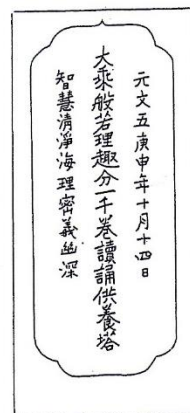 元文五庚申年十月十四日
大乘般若理趣分一千巻讀誦供養塔
智慧清淨海理密義幽深